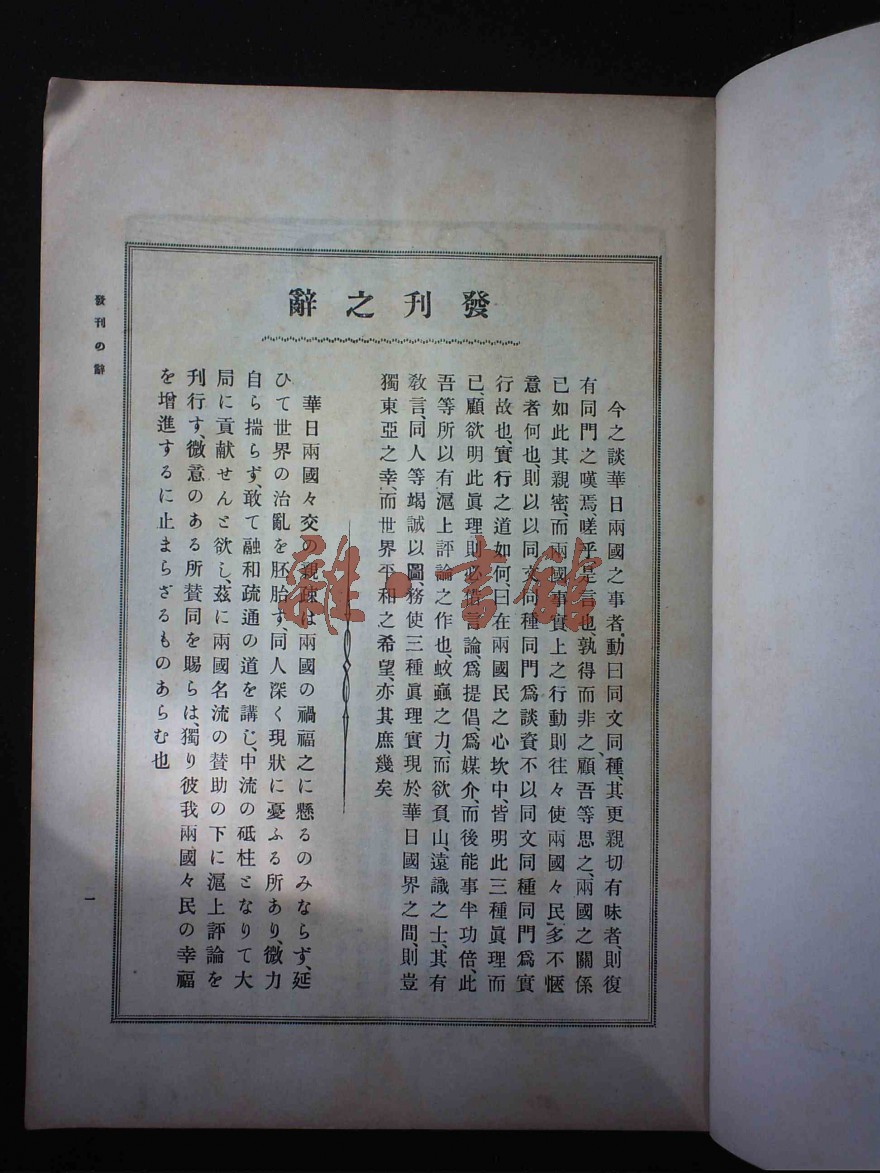 發刊之辭
今之談華日兩國之事者、動曰同文同種、其更親切有味者、則復
有同門之嘆焉、嗟乎是言也、孰得而非之、顧吾等思之、兩國之關係
已如此其親密、而兩國事實上之行動則往々使兩國々民、多不愜
意者何也、則以以同文同種同門爲談資不以同文同種同門爲實
行故也、實行之道如何、曰在兩國民之心坎中、皆明此三種眞理而
已、顧欲明此眞理、則必借言論爲提倡、爲媒介、而後能事半功倍、此
吾等所以有滬上評論之作也、蚊蝱之力、而欲負山、遠識之士、其有
敎言、同人等竭誠以圖、務使三種眞理實現於華日國界之間、則豈
獨東亞之幸、而世界平和之希望、亦其庶幾矣
華日兩國々交の親疎は兩國の禍福之に懸るのみならず、延
ひて世界の治亂を胚胎す、同人深く現狀に憂ふる所あり、微力
自ら揣らず、敢て融和疏通の道を講じ、中流の砥柱となりて大
局に貢献せんと欲し、茲に兩國名流の賛助の下に滬上評論を
刊行す、微意のある所賛同を賜らは、獨り彼我兩國々民の幸福
を增進するに止まらざるものあらむ也
發刊の辭
一
雜·書館